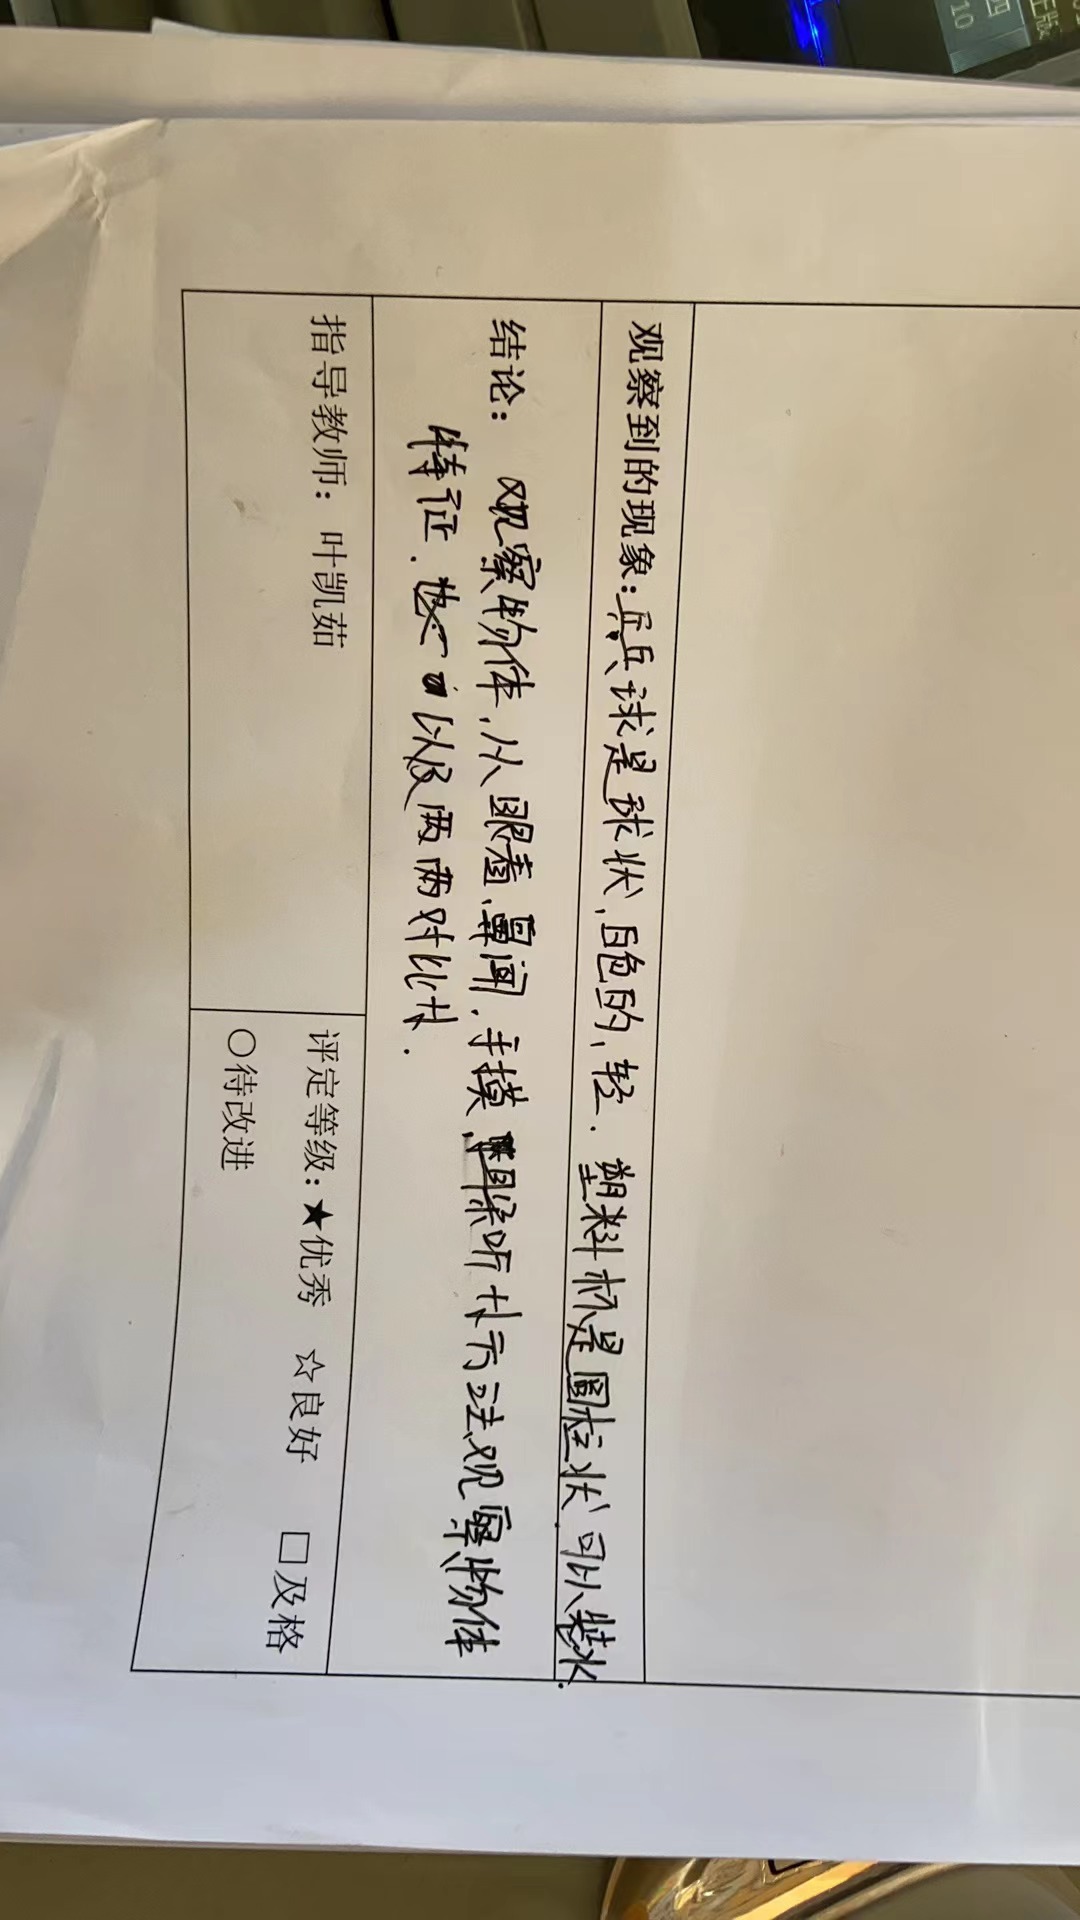 四
正版
10
观察到的现象：乒乓球是球状、白色的、轻. 塑料杯是圆柱状、可以装水.
结论： 观察物体、从眼看、鼻闻、手摸、耳朵听村方法观察物体
特征. 以及两两对比村.
指导教师：叶凯茹
评定等级：★优秀 ☆良好 □及格
○待改进